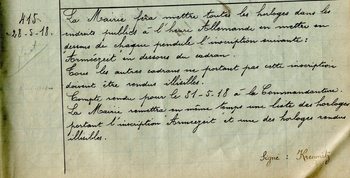 415.
28-5-18.
La Mairie fera mettre toutes les horloges dans les
endroits publics à l'heure Allemande en mettre en
dessous de chaque pendule l'inscription suivante:
Armeezeit en dessous du cadran.
Tous les autres cadrans ne portant pas cette inscription
doivent être rendus illisibles.
Compte rendu pour le 31-5-18 à la Commandantur.
La Mairie remettra en même temps une liste des horloges
portant l'inscription Armeezeit et une des horloges rendues
illisibles.
Signé :